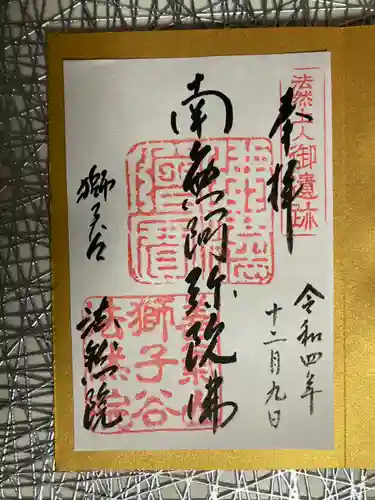 奉拝
法然上人御遺跡
令和四年
十二月九日
南無阿弥陀佛
獅子谷
法然院